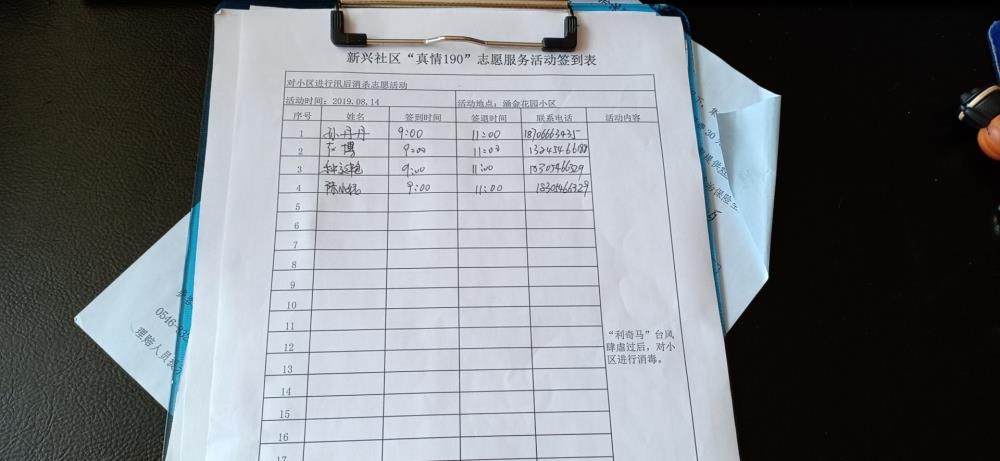 新兴社区“真情190”志愿服务活动签到表
对小区进行汛后消杀志愿活动
活动时间：2019.08.14 活动地点：涌金花园小区
序号 姓名 签到时间 签退时间 联系电话 活动内容
1 孙丹丹 9:00 11:00 18706663435
2 博 9:00 11:00
3 9:00 11:00 18305466329
4 9:00 11:00 18305466329
5
6
7
8
9
10
11
12
13
14
15
16
17
“利奇马”台风
肆虐过后，对小
区进行消毒。
0546-
理赔人员